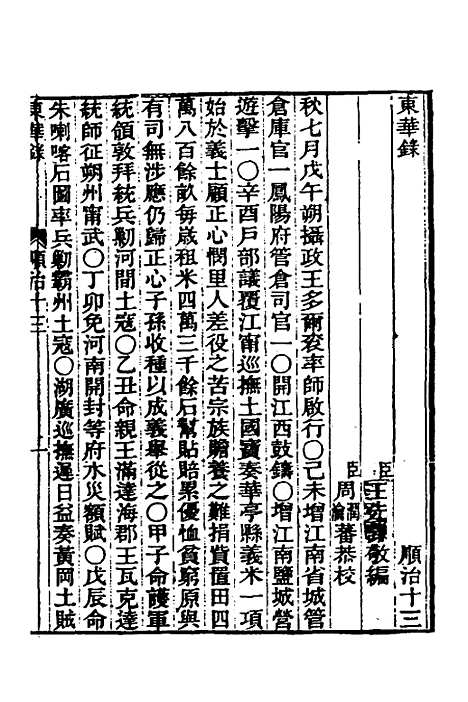 東華錄 順治十三
臣王先謙敬編
臣周潤蕃 周瀹蕃恭校
秋七月戊午朔攝政王多爾袞率師啟行〇己未增江南省城管
倉庫官一鳳陽府管倉司官一〇開江西鼓鑄〇增江南鹽城營
遊擊一〇辛酉戶部議覆江甯巡撫土國寶奏華亭縣義米一項
始於義士顧正心憫里人差役之苦宗族贍養之難捐貲置田四
萬八百餘畝每歲租米四萬三千餘石幫貼賠累優恤貧窮原與
有司無涉應仍歸正心子孫收種以成義舉從之〇甲子命護軍
統領敦拜統兵勦河間土寇〇乙丑命親王滿達海郡王瓦克達
統師征朔州甯武〇丁卯免河南開封等府水災額賦〇戊辰命
朱喇喀石圖率兵勦霸州土寇〇湖廣巡撫遲日益奏黃岡土賊
東華錄 順治十三 一